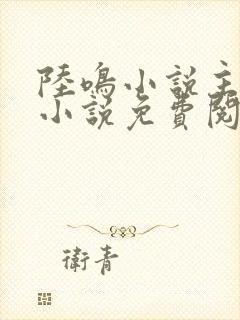 陸鳴小說主
小說免費閱
衛青